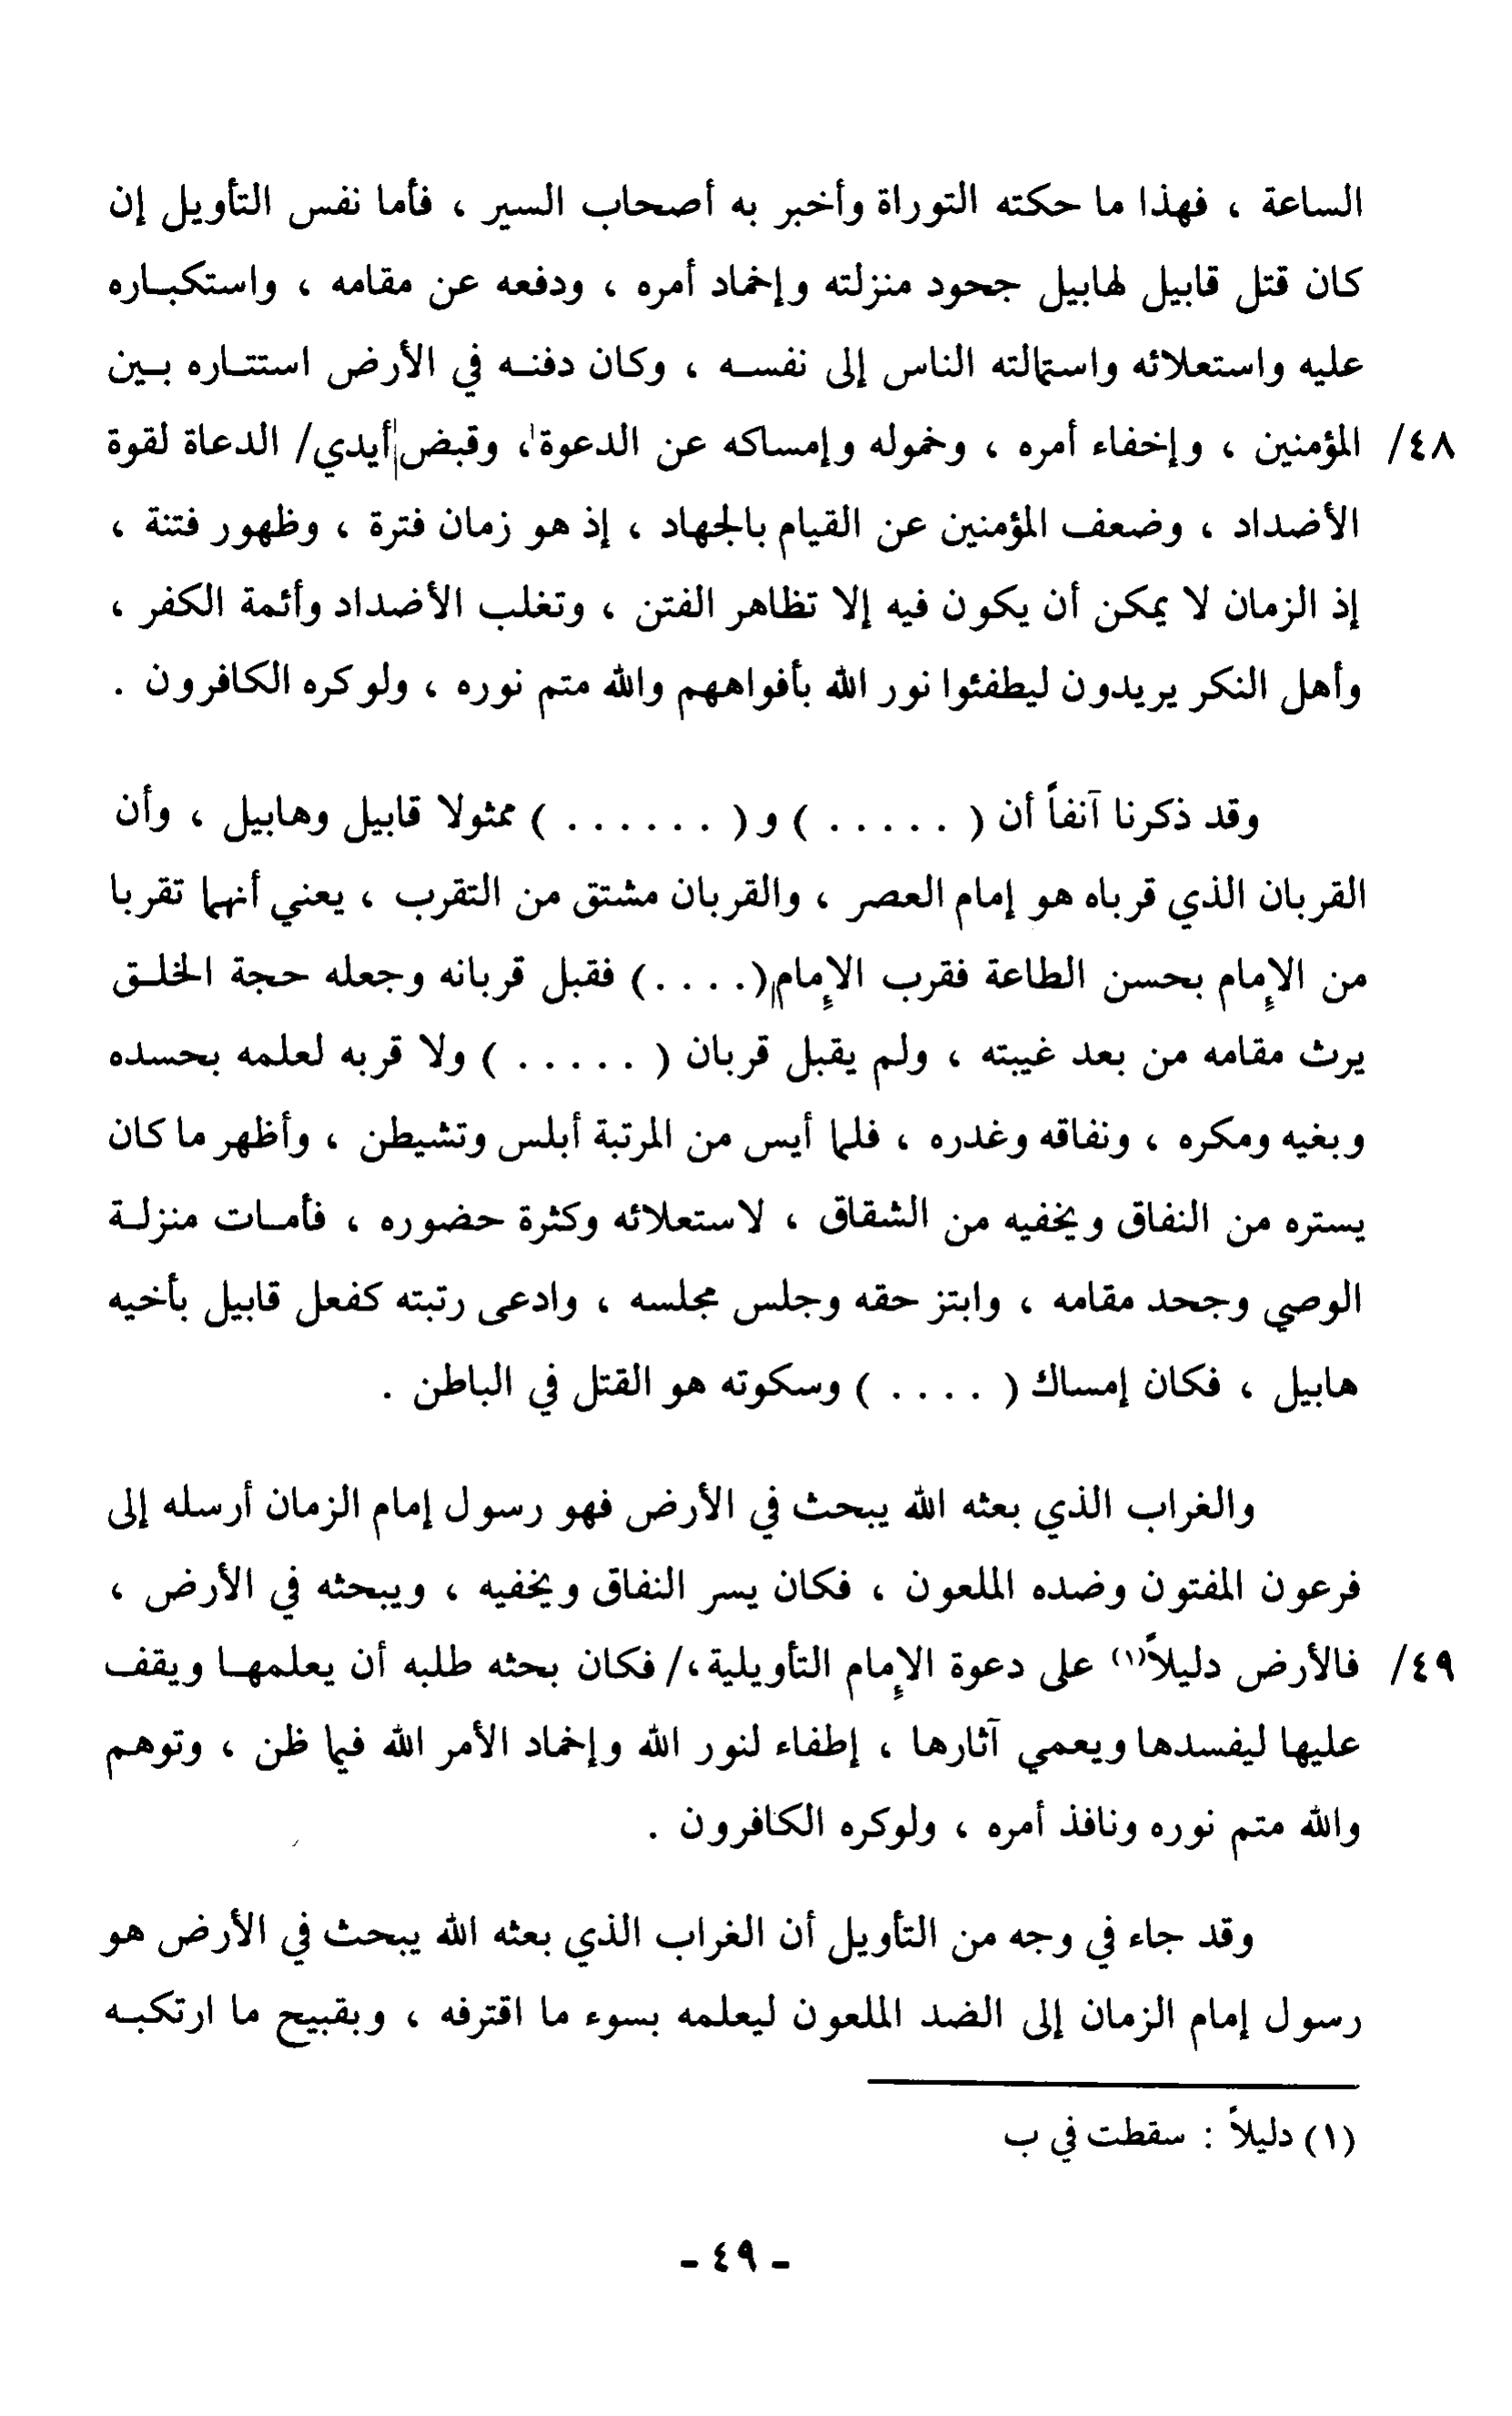 الساعة ، فهذا ما حكته التوراة وأخبر به أصحاب السير ، فأما نفس التأويل إن
كان قتل قابيل لهابيل جحود منزلته وإخماد أمره ، ودفعه عن مقامه ، واستكباره
عليه واستعلائه واستمالته الناس إلى نفسه ، وكان دفنه في الأرض استتاره بين
٤٨/ المؤمنين ، وإخفاء أمره ، وخموله وإمساكه عن الدعوة ، وقبض أيدي/ الدعاة لقوة
الأضداد ، وضعف المؤمنين عن القيام بالجهاد ، إذ هو زمان فترة ، وظهور فتنة ،
إذ الزمان لا يمكن أن يكون فيه إلا تظاهر الفتن ، وتغلب الأضداد وأئمة الكفر ،
وأهل النكر يريدون ليطفئوا نور الله بأفواههم والله متم نوره ، ولو كره الكافرون .
وقد ذكرنا آنفاً أن ( . . . . . ) و ( . . . . . . ) ممثولا قابيل وهابيل ، وأن
القربان الذي قرباه هو إمام العصر ، والقربان مشتق من التقرب ، يعني أنهما تقربا
من الإمام بحسن الطاعة فقرب الإمام (. . . .) فقبل قربانه وجعله حجة الخلق
يرث مقامه من بعد غيبته ، ولم يقبل قربان ( . . . . . ) ولا قربه لعلمه بحسده
وبغيه ومكره ، ونفاقه وغدره ، فلما أيس من المرتبة أبلس وتشيطن ، وأظهر ما كان
يستره من النفاق ويخفيه من الشقاق ، لاستعلائه وكثرة حضوره ، فأمات منزلة
الوصي وجحد مقامه ، وابتز حقه وجلس مجلسه ، وادعى رتبته كفعل قابيل بأخيه
هابيل ، فكان إمساك ( . . . . ) وسكوته هو القتل في الباطن .
والغراب الذي بعثه الله يبحث في الأرض فهو رسول إمام الزمان أرسله إلى
فرعون المفتون وضده الملعون ، فكان يسر النفاق ويخفيه ، ويبحثه في الأرض ،
٤٩/ فالأرض دليلاً(١) على دعوة الإمام التأويلية ،/ فكان بحثه طلبه أن يعلمها ويقف
عليها ليفسدها ويعمي آثارها ، إطفاء لنور الله وإخماد الأمر الله فيما ظن ، وتوهم
والله متم نوره ونافذ أمره ، ولوكره الكافرون .
وقد جاء في وجه من التأويل أن الغراب الذي بعثه الله يبحث في الأرض هو
رسول إمام الزمان إلى الضد الملعون ليعلمه بسوء ما اقترفه ، وبقبيح ما ارتكبه
(١) دليلاً : سقطت في ب
- ٤٩ -